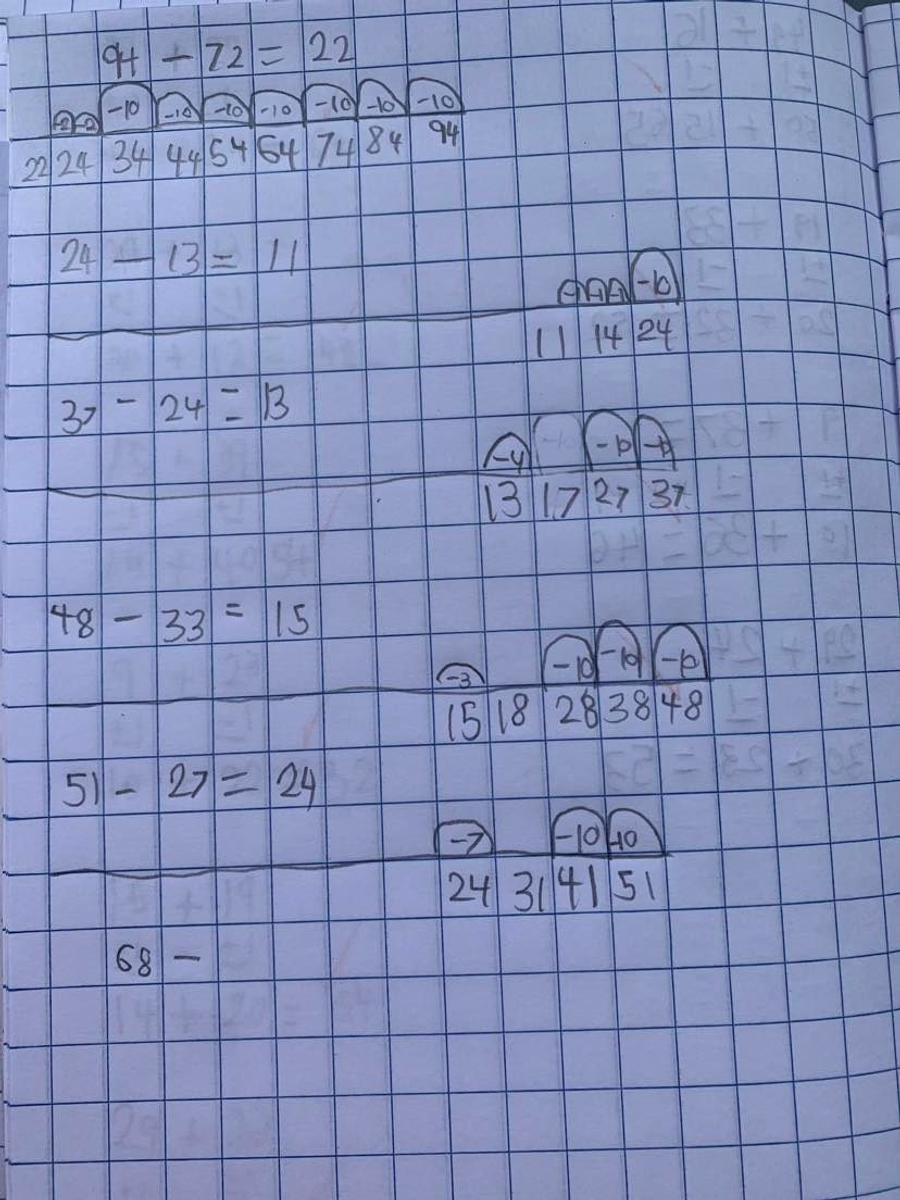 94 - 72 = 22
-2 -2 -10 -10 -10 -10 -10 -10 -10
22 24 34 44 54 64 74 84 94
24 - 13 = 11
-1 -1 -1 -10
11 14 24
37 - 24 = 13
-4 -10 -10
13 17 27 37
48 - 33 = 15
-3 -10 -10 -10
15 18 28 38 48
51 - 27 = 24
-7 -10 -10
24 31 41 51
68 -